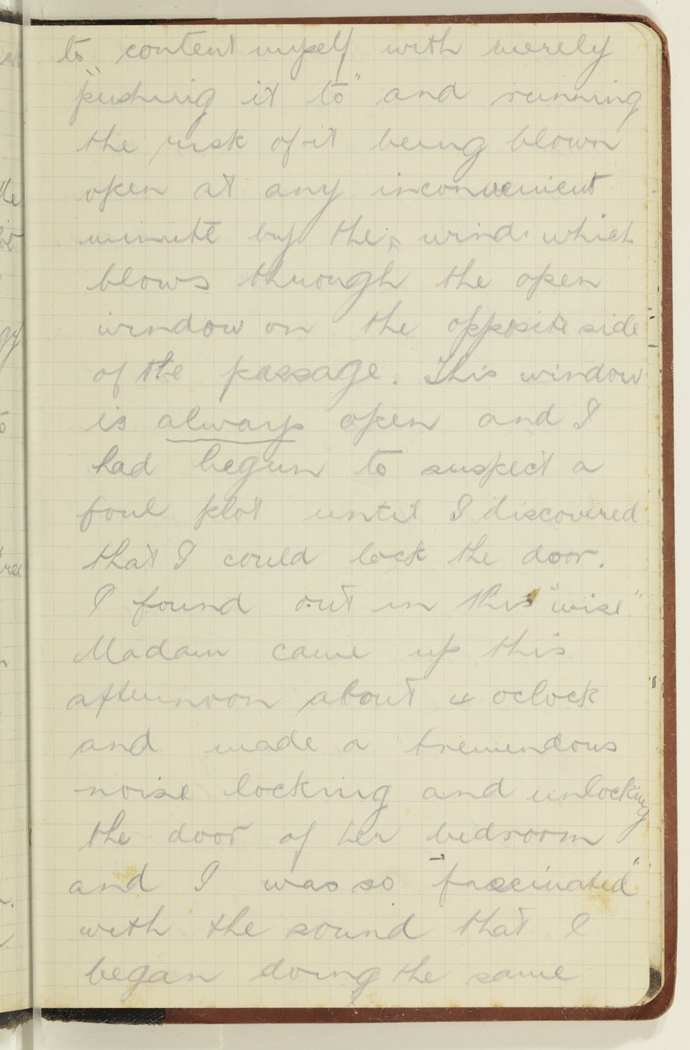 to content myself with merely
"pushing it to" and running
the risk of it being blown
open at any inconvenient
minute by the wind which
blows through the open
window on the opposite side
of the passage. This window
is always open and I
had begun to suspect a
foul plot until I discovered
that I could lock the door.
I found out in this "wise".
Madam came up this
afternoon about 4 oclock
and made a tremendous
noise locking and unlocking
the door of her bedroom
and I was so "fascinated"
with the sound that I
began doing the same